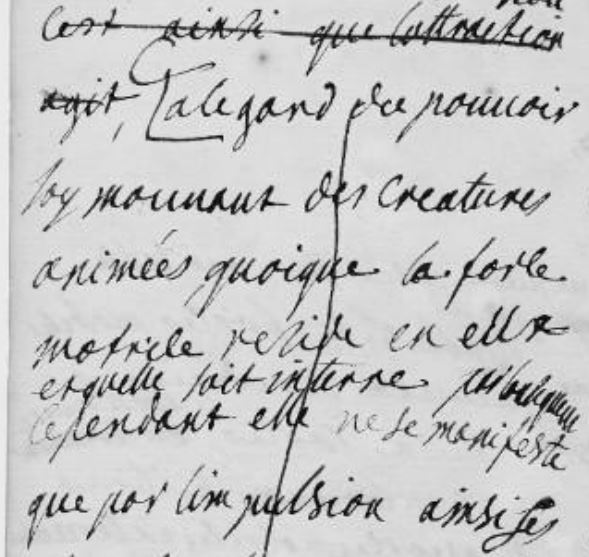 C'est ainsi que lattraction
agit, alegard du pouvoir
soy mouuant des Creatures
animées quoique la force
motrice reside en elle
et quelle soit interne
cependant elle ne se manifeste
que par limpulsion ainsi ses